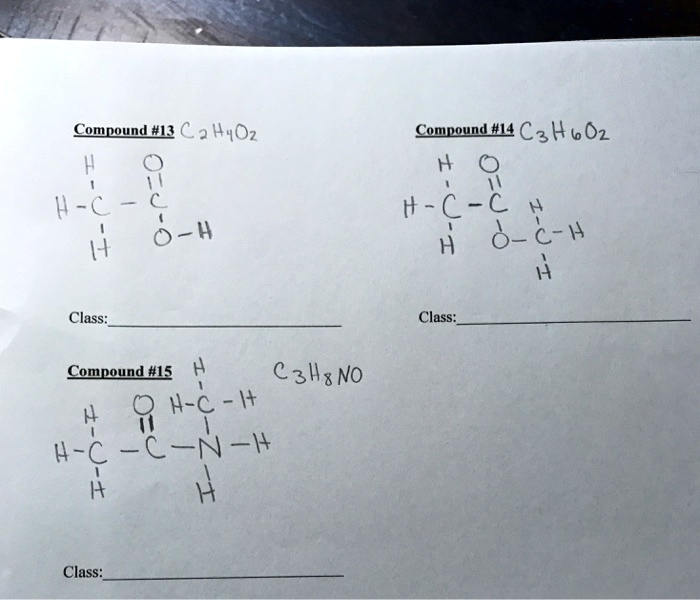 Compound #13 C2H4O2
H O
H-C-C
H O-H
Class:
Compound #14 C3H6O2
H O
H-C-C H
H O-C-H
H
Class:
Compound #15 H C3H8NO
H O H-C-H
H-C-C-N-H
H H
Class: